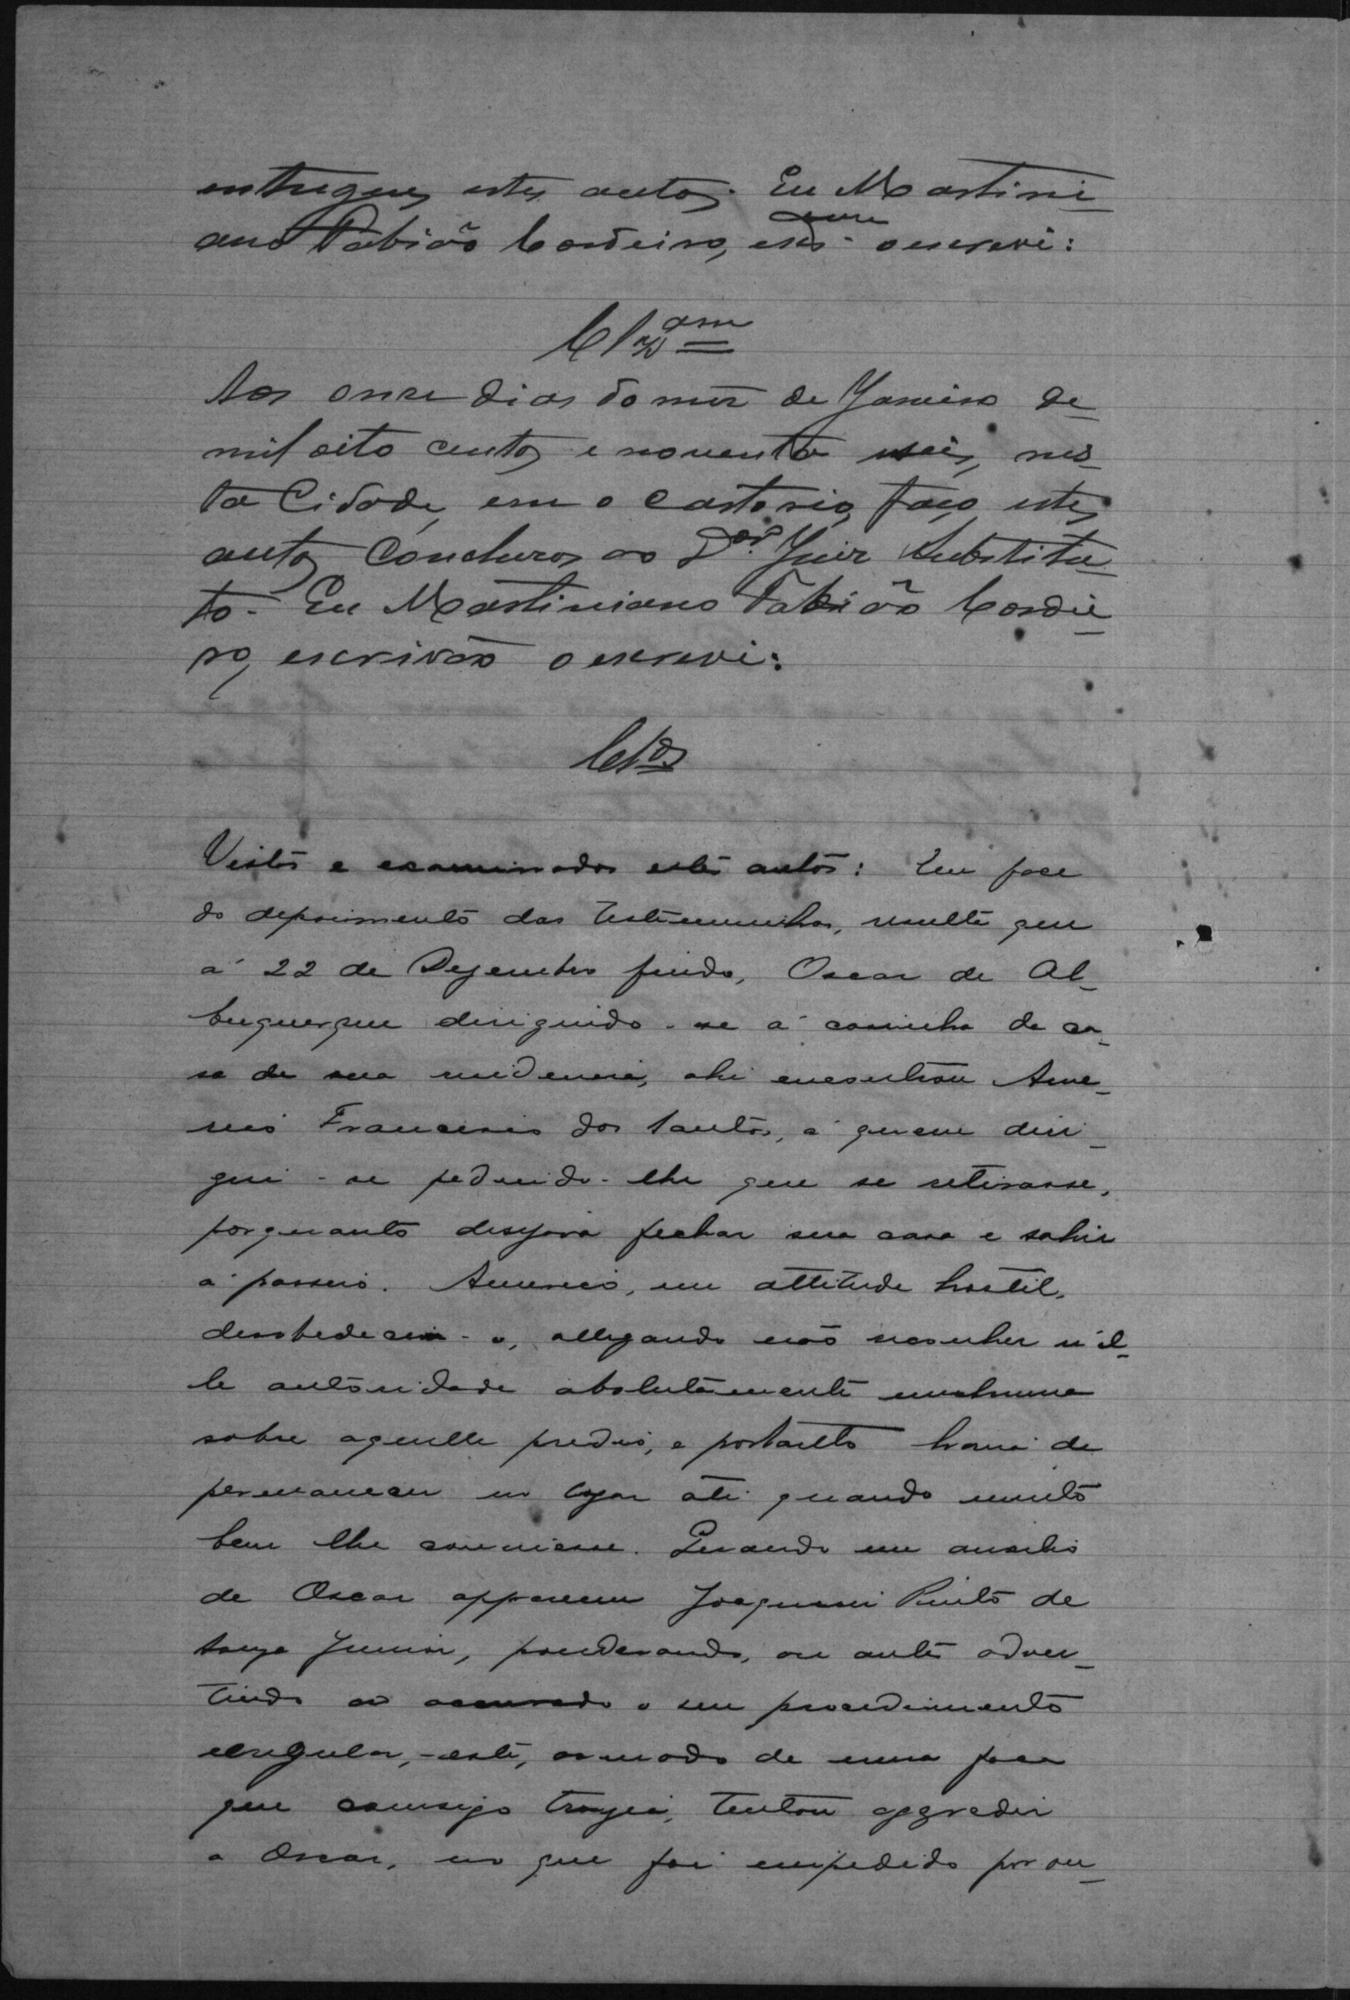 entregues estes autos. Eu Martini-
ano Fabião Cordeiro, esc.am o escrevi:
Clzam
Aos onze dias do mez de Janeiro de
mil oito centos e noventa e seis, nes-
ta Cidade, em o Cartorio, faço estes
autos Concluzos ao Dor. Juiz Substitu-
to. Eu Martiniano Fabião Cordei-
ro, escrivão o escrevi:
Clzos
Vistos e examinados estes autos: Em face
do depoimento das testemunhas, resulta que
a' 22 de Dezembro findo, Oscar de Al-
buquerque dirigindo-se á cosinha da ca-
sa de sua residencia, ahi encontrou Ame-
rico Francisco dos Santos, a' quem diri-
giu-se pedindo-lhe que se retirasse,
porquanto desejava fechar sua casa e sahir
a' passeio. Americo, em attitude hostil,
desobedeceu-o, allegando não reconhecer n'el-
le autoridade absolutamente nenhuma
sobre aquelle predio, e portanto havia de
permanecer no logar até quando muito
bem lhe conviesse. Quando em auxilio
de Oscar appareceu Joaquim Pinto de
Souza Junior, ponderando, ou antes adver-
tindo ao accusado o seu procedimento
irregular, - este, armado de uma faca
que comsigo trazia, tentou aggredir
a Oscar, no que foi impedido por ou-